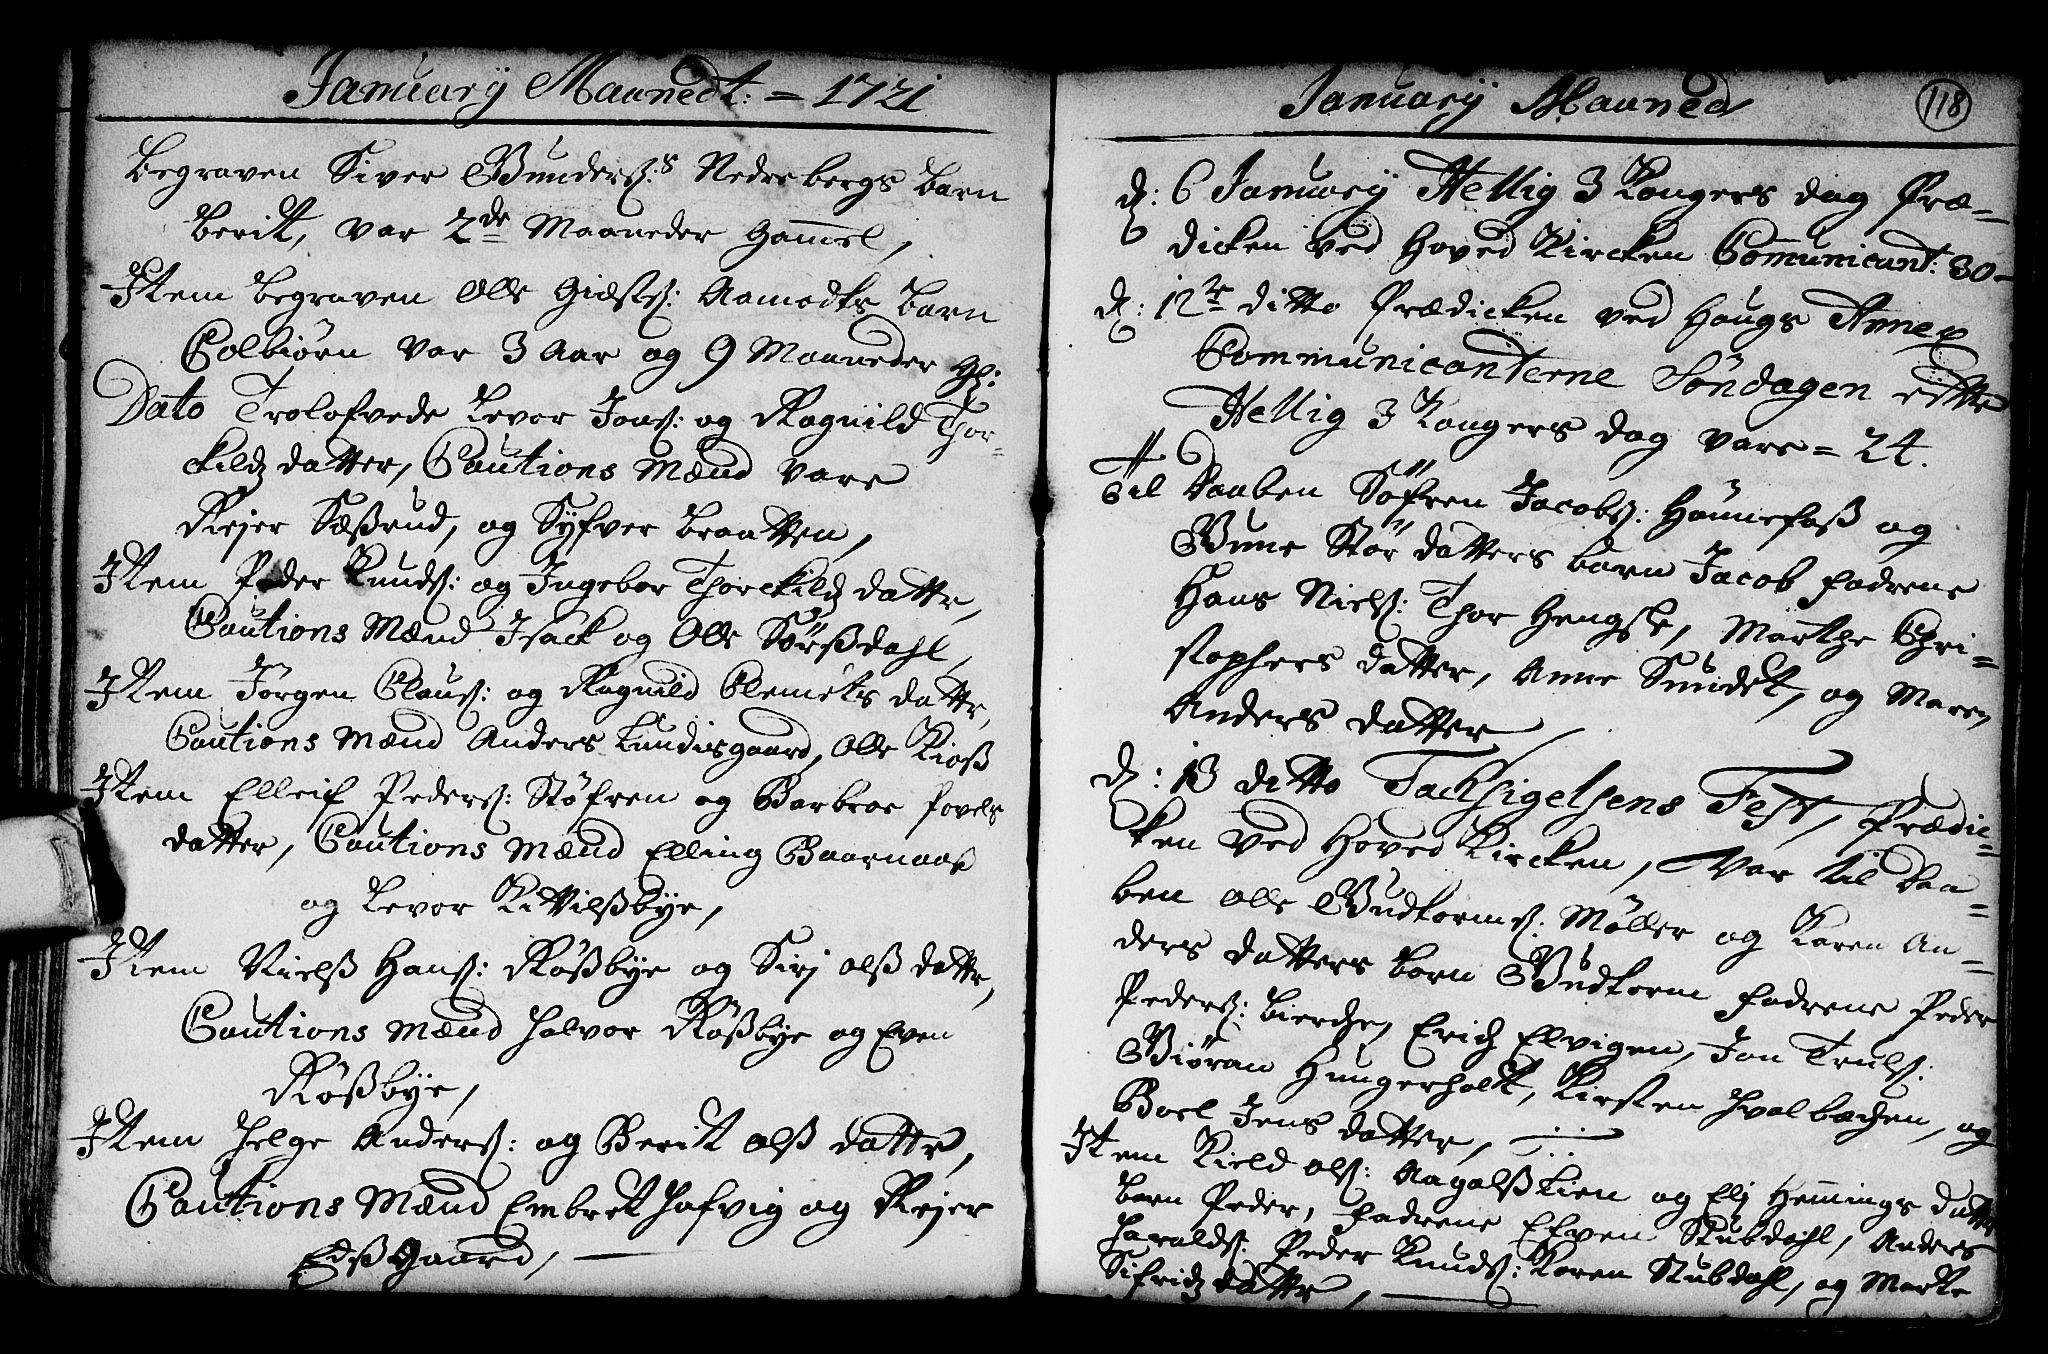 January Maanedt: = 1721
Begraven Siver Gunders:s Nedrebergs Barn
Berit, var 2de Maaneder Gammel,
Item Begraven Olle Giæsts: Aamodts Barn
Colbiørn var 3 Aar og 9 Maaneder gl:
Dato Trolofvede Levor Jons: og Ragnild Thor-
kilds datter, Cautions Mænd vare
Rejer Sæßrud, og Syfver Braatten,
Item Peder Knuds: og Ingebor Thorckilds dattr,
Cautions Mænd Isack og Olle Sørßdahl,
Item Jørgen Claus: og Ragnild Clemets dattr,
Cautions Mænd Anders Lundisgaard, Olle Kioß
Item Elleif Peders: Støfren og Barbroe Povels
datter, Cautions Mænd Elling Baarnaas
og Levor Kittilßbye,
Item Nielß Hans: Røßbye og Sirj Olß dattr,
Cautions Mænd Halvor Røßbye og Even
Røßbye,
Item Helge Anders: og Berit Olß dattr,
Cautions Mænd Embret Hafvig og Rejer
Edß Gaard,
January Maaned
118
d: 6 January Hellig 3 Kongers dag Præ=
dicken ved Hoved Kircken Communicant: 30-
d: 12te ditto Prædicken ved Hougs Annex
Communicanterne Søndagen efter
Hellig 3 Kongers dag vare = 24.
Til Daaben Søfren Jacobs: Hønnefoß og
Gune Stør datters barn Jacob fadrene
Hans Niels: Thor Hengsle, Marthe Chri=
stophers datter, Anne Smedet, og Maren
Anders datter
d: 13 ditto Tacksigelsens Fest, Prædic=
ken ved Hoved Kircken, Var til Daa=
ben Olle Gudtorms: Møller og Karen An=
ders datters born Gudtorm fadrene Peder
Peders: Bierche, Erich Elvigen, Jon Truls:
Giøran Hungerholt, Kirsten Hvalbachen, og
Boel Jens datter,
Item Kield Ols: Aagalßkien og Elj Hemings datters
barn Peder, fadrene Efven Stubdahl, Anders
Haralds: Peder Knuds: Karen Stubdahl, og Marte
Sifrids dattr,